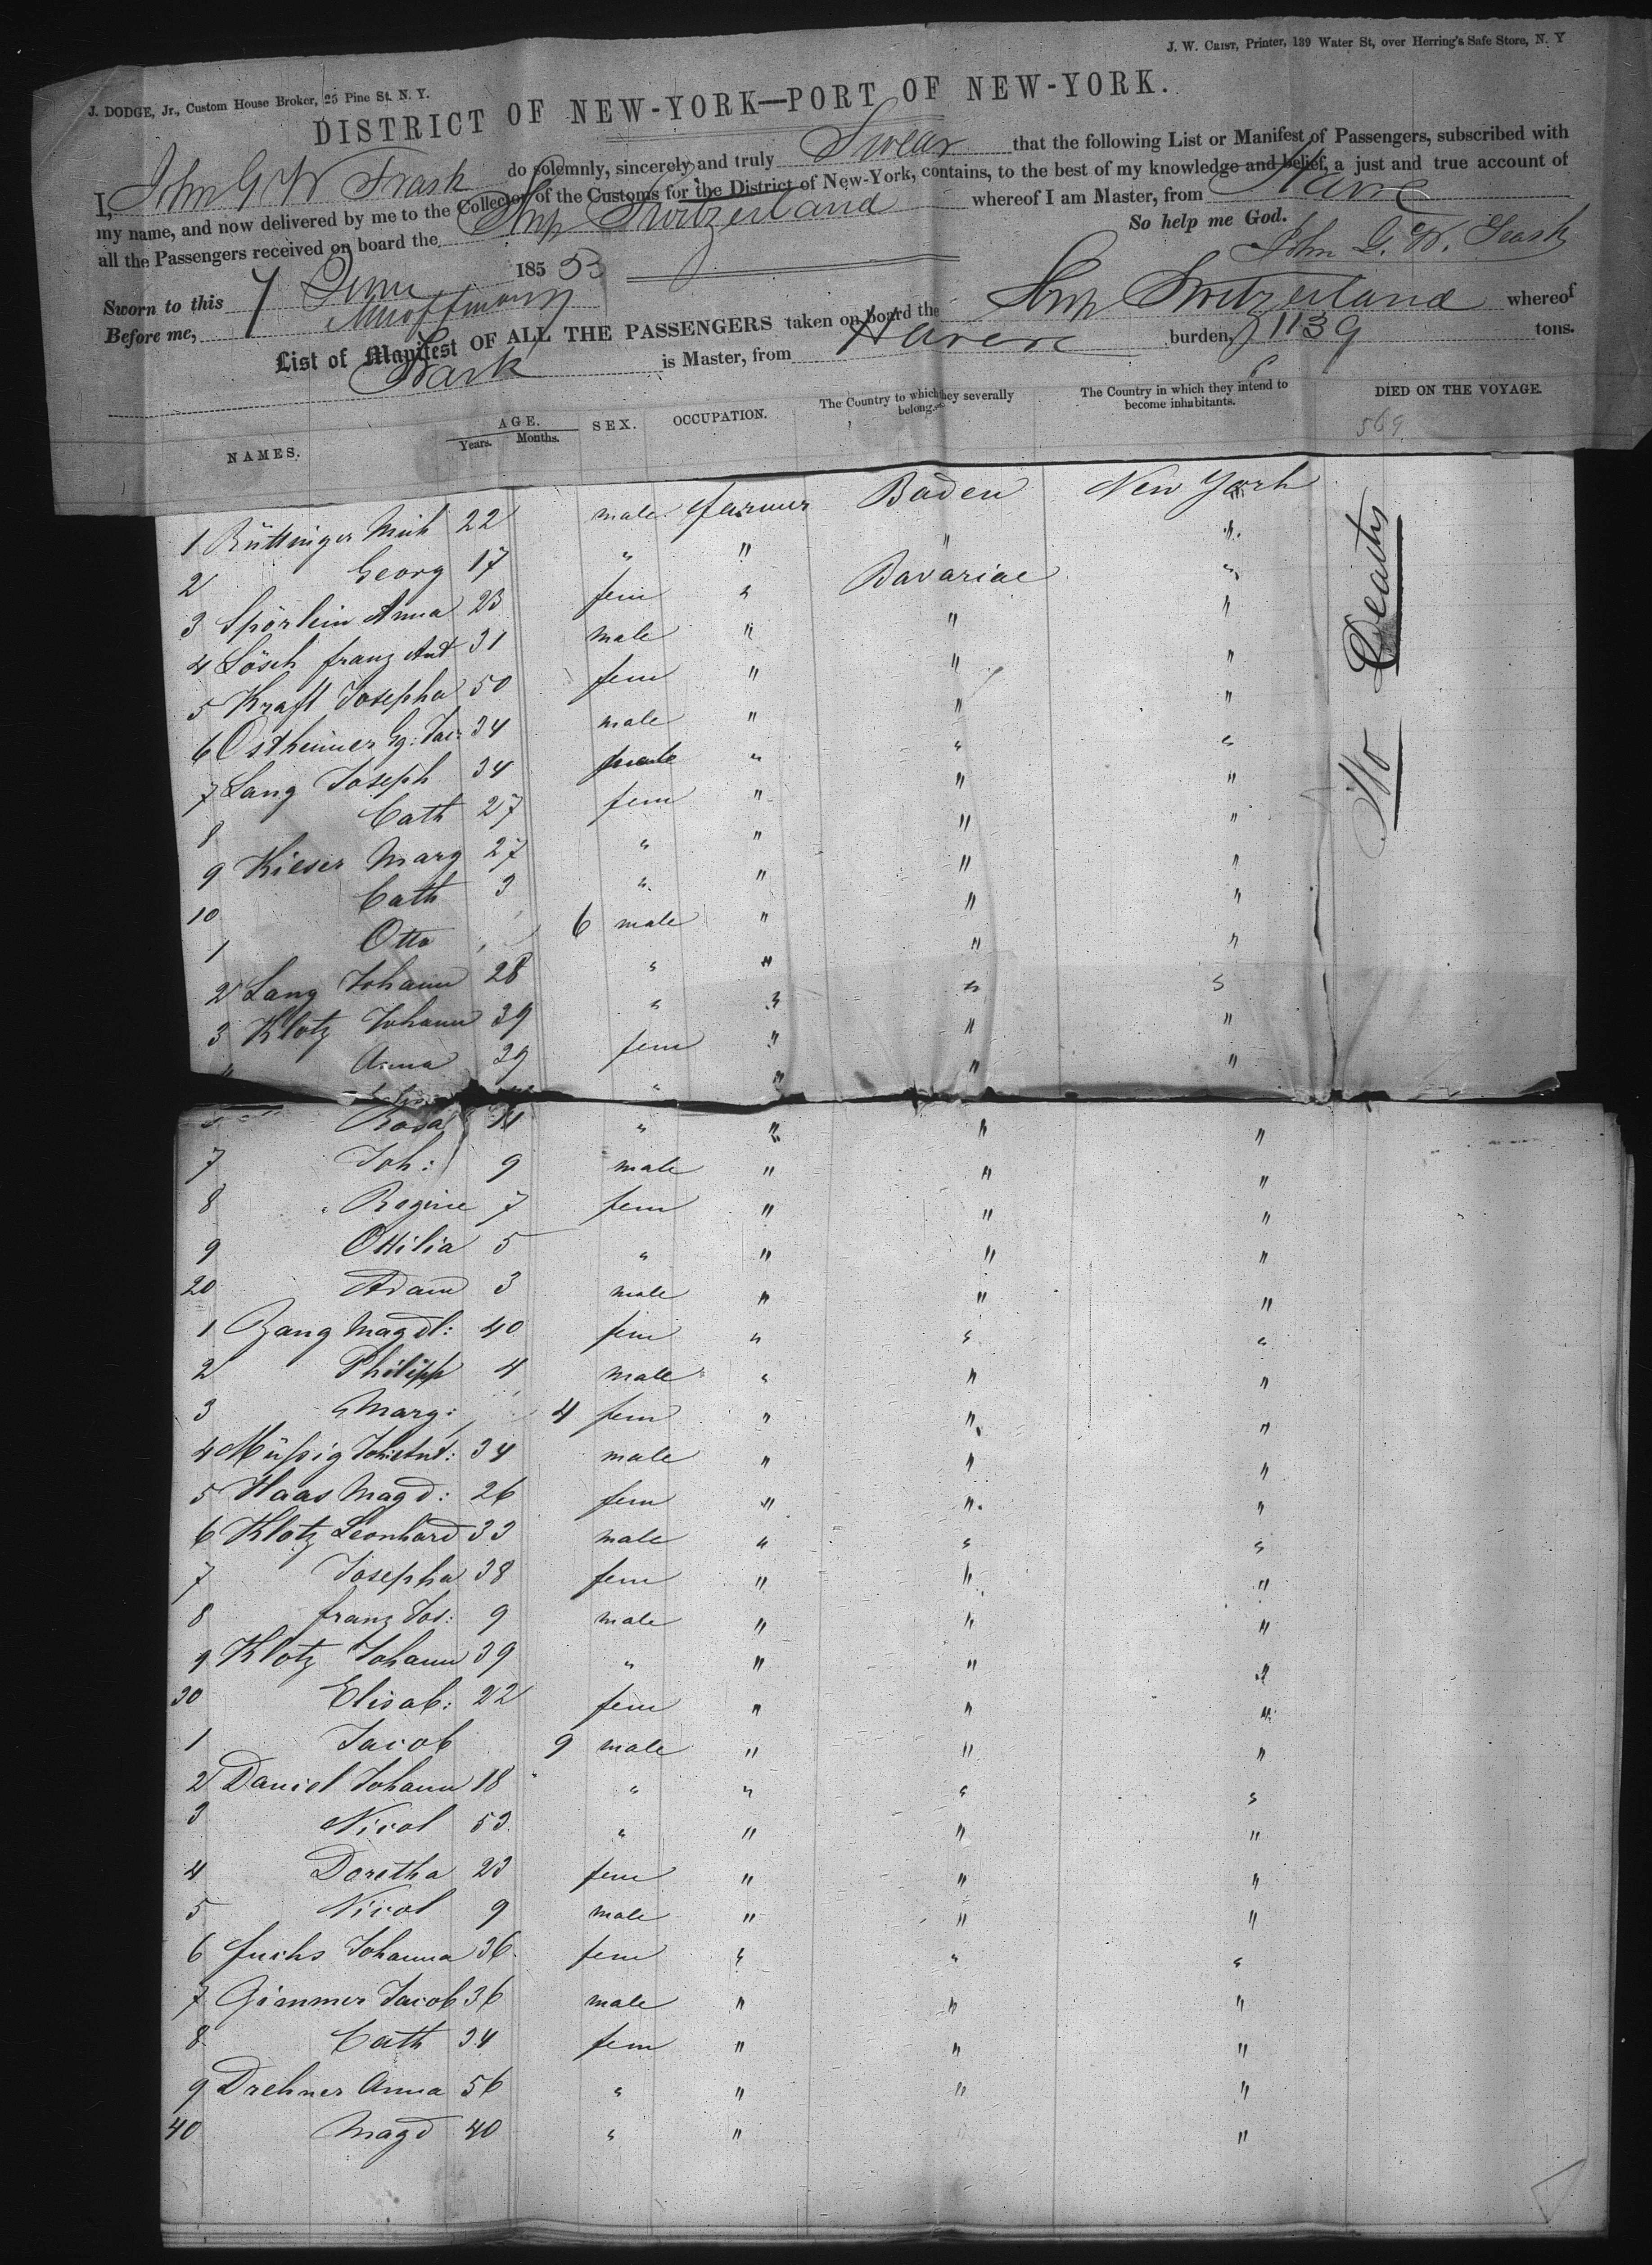 J. W. Crist, Printer, 139 Water St, over Herring's Safe Store, N. Y
J. DODGE, Jr., Custom House Broker, 25 Pine St. N. Y.
DISTRICT OF NEW-YORK—PORT OF NEW-YORK.
I, John G W Trask do solemnly, sincerely and truly Swear that the following List or Manifest of Passengers, subscribed with
my name, and now delivered by me to the Collector of the Customs for the District of New-York, contains, to the best of my knowledge and belief, a just and true account of
all the Passengers received on board the Ship Switzerland whereof I am Master, from Havre
So help me God.
Sworn to this 7 June 1853 John G. W. Trask
Before me,
List of Manifest OF ALL THE PASSENGERS taken on board the Ship Switzerland whereof
Trask is Master, from Havre burden, 1139 tons.
NAMES. AGE. Years. Months. SEX. OCCUPATION. The Country to which they severally belong. The Country in which they intend to become inhabitants. DIED ON THE VOYAGE.
569
1 Rüttinger Mich 22 male farmer Baden New York
2 Georg 17 " " " "
3 Spörlein Anna 23 fem " Bavariae "
4 Lösch franz Ant 31 male " " "
5 Kraft Josepha 50 fem " " "
6 Ostheimer Gg: Jac: 34 male " " "
7 Lang Joseph 34 male " " "
8 Cath 27 fem " " "
9 Kieser Marg 27 " " " "
10 Cath 3 " " " "
1 Otto 6 male " " "
2 Lang Johann 28 " " " "
3 Klotz Johann 39 " " " "
Anna 39 fem " " "
" " " "
Rosa 11 " " " "
7 Joh: 9 male " " "
8 Regine 7 fem " " "
9 Ottilia 5 " " " "
20 Adam 3 male " " "
1 Zang Magdl: 40 fem " " "
2 Philipp 4 male " " "
3 Marg: 4 fem " " "
4 Müßig Joh: Ant: 34 male " " "
5 Haas Magd: 26 fem " " "
6 Klotz Leonhard 33 male " " "
7 Josepha 38 fem " " "
8 franz Jos: 9 male " " "
9 Klotz Johann 39 " " " "
30 Elisab: 22 fem " " "
1 Jacob 9 male " " "
2 Daniel Johann 18 " " " "
3 Nicol 53 " " " "
4 Doretha 23 fem " " "
5 Nicol 9 male " " "
6 fuchs Johanna 36 fem " " "
7 Gimmer Jacob 36 male " " "
8 Cath 34 fem " " "
9 Drehner Anna 56 " " " "
40 Magd 40 " " "
No Deaths